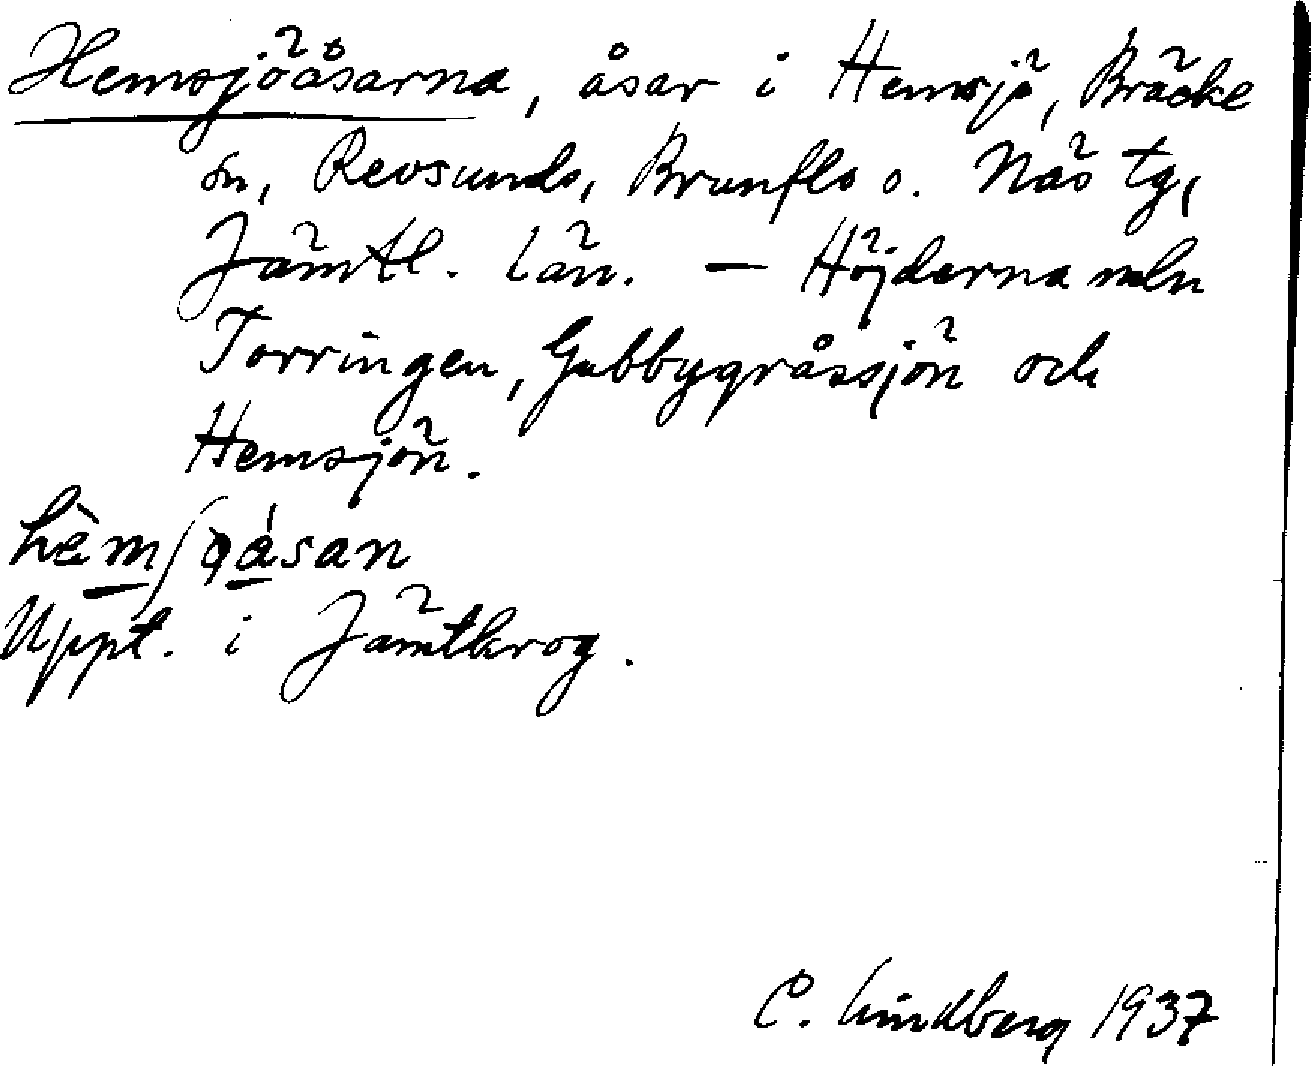 Hemsjöåsarna, åsar i Hemsjö, Bräcke
sn, Revsunds, Brunflo o. Näs tg,
Jämtl. län. — Höjderna mln
Torringen, Gubbygråssjön och
Hemsjön.
hèmʃǫásan
Uppt. i Jämtkrog.
C. Lindberg 1937